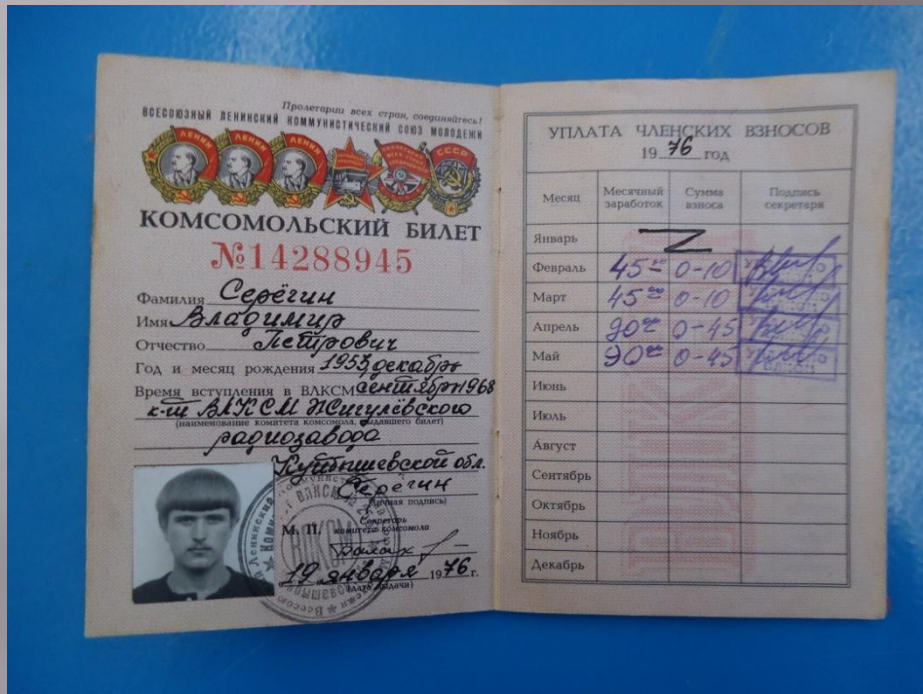 Пролетарии всех стран, соединяйтесь!
ВСЕСОЮЗНЫЙ ЛЕНИНСКИЙ КОММУНИСТИЧЕСКИЙ СОЮЗ МОЛОДЕЖИ
ЛЕНИН ЛЕНИН ЛЕНИН СССР
КОМСОМОЛЬСКИЙ БИЛЕТ
№14288945
Фамилия Серёгин
Имя Владимир
Отчество Петрович
Год и месяц рождения 1953, декабрь
Время вступления в ВЛКСМ сентябрь 1968
к-т ВЛКСМ Жигулёвского
(наименование комитета комсомола, выдавшего билет)
радиозавода
Куйбышевской обл.
Серегин
(личная подпись)
М. П.
Секретарь
комитета комсомола
19 января 1976 г.
(дата выдачи)
УПЛАТА ЧЛЕНСКИХ ВЗНОСОВ
1976 год
Месяц Месячный заработок Сумма взноса Подпись секретаря
Январь Z
Февраль 45 00 0-10
Март 45 00 0-10
Апрель 90 00 0-45
Май 90 00 0-45
Июнь
Июль
Август
Сентябрь
Октябрь
Ноябрь
Декабрь